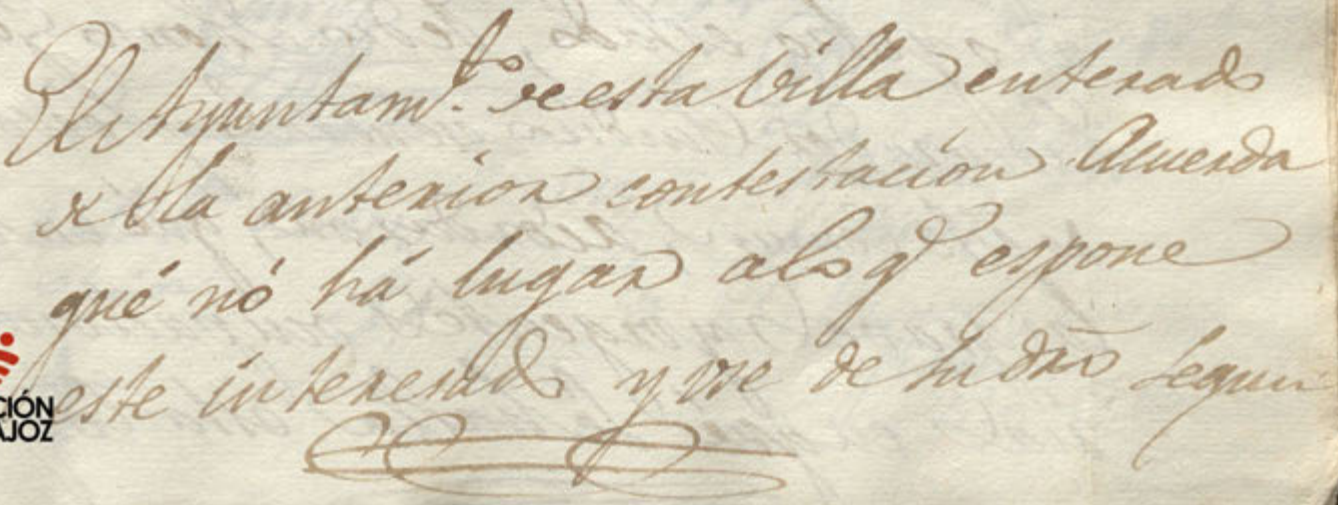 El Ayuntam.to de esta Villa enterado
de la anterior contestacion Acuerda
qué nó há lugar alo q.e espone
este interesado y use de su dro segun
CIÓN
AJOZ